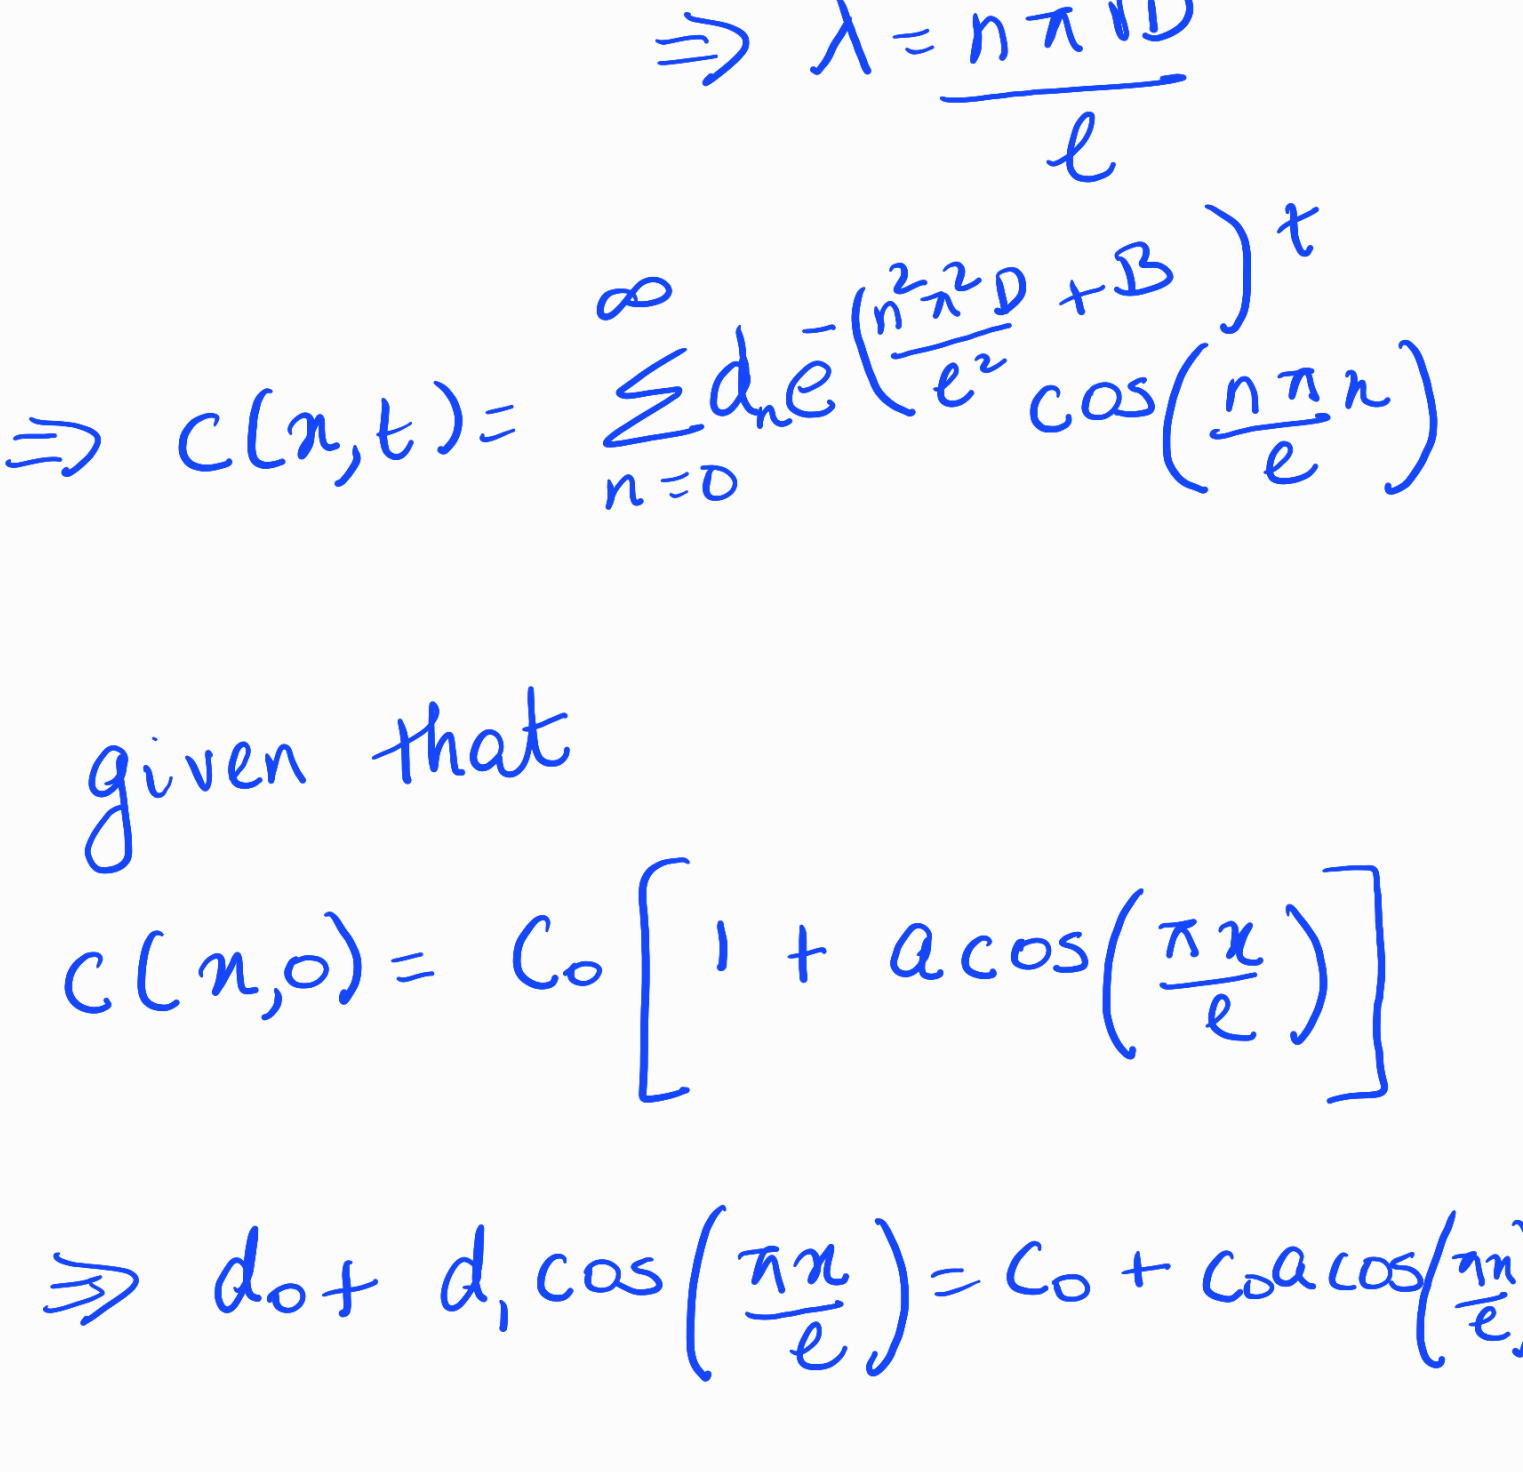 ⇒ λ = nπ√D / l
⇒ c(x,t) = ∑_{n=0}^{∞} d_n e^{-(n²π²D/l² + B)t} cos(nπx/l)
given that
c(x,0) = C₀[1 + a cos(πx/l)]
⇒ d₀ + d₁ cos(πx/l) = C₀ + C₀ a cos(πx/l)